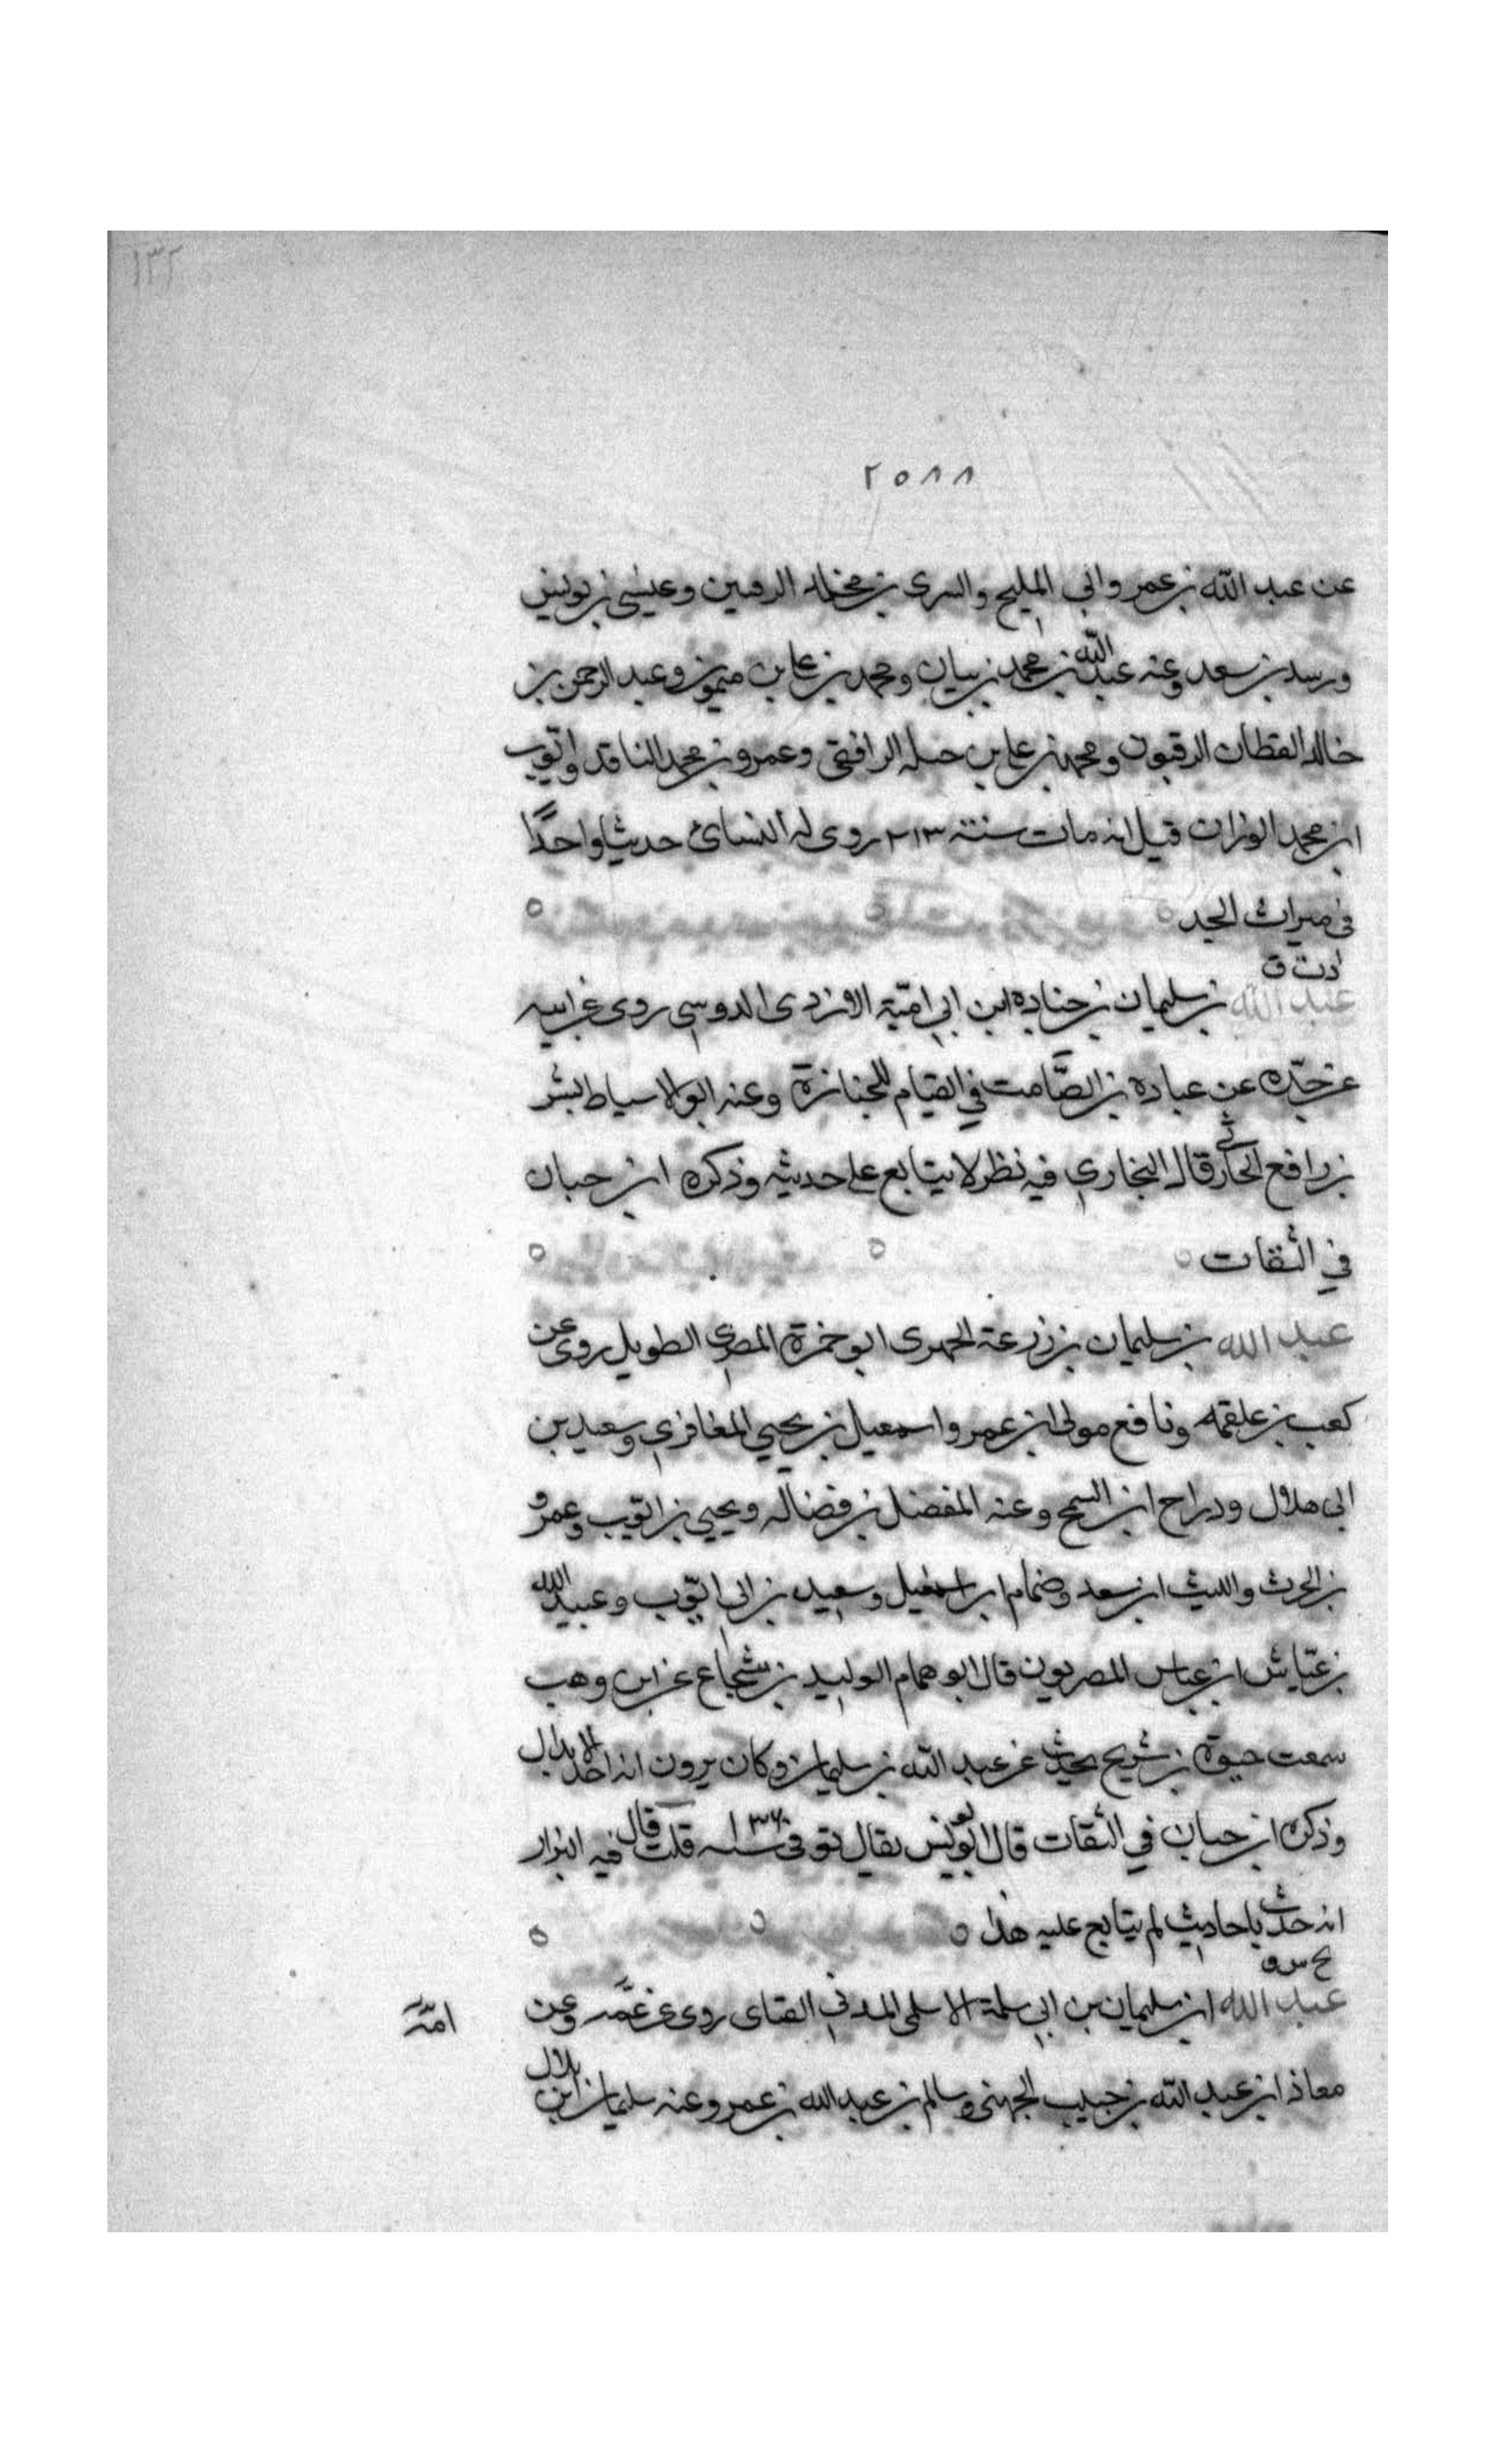 ١٣٢
٢٥٨٨
عن عبد الله بن عمرو وابي المليح والسرى بن مخلد الرقيين وعيسى بن يونس
ورسد بن سعد وعنه عبد الله بن محمد بن بيان ومحمد بن علي بن ميمون وعبد الرحمن بن
خالد القطان الرقيون ومحمد بن علي بن حبله الرافقي وعمرو بن محمد الناقد وايوب
ابن محمد الوزان قيل انه مات سنة ٢١٣ روى له النسائ حديثا واحدًا
في ميراث الجد
د ت ق
عبد الله بن سليمان بن جناده ابن ابي امية الازدى الدوسي روى عن ابيه
عن جدّه عن عباده بن الصَّامت في القيام للجنازة وعنه ابو الاسباط بشر
بن رافع الحارثي قال البخاري فيه نظر لا يتابع على حديثه وذكره ابن حبان
في الثقات
عبد الله بن سليمان بن زرعة الحميرى ابو حمزة المصري الطويل روى عن
كعب بن علقمه ونافع مولى ابن عمر واسمعيل بن يحيي المغافري وسعيد بن
ابى هلال ودراج ابن السمح وعنه المفضل بن فضاله ويحيي بن ايّوب وعمرو
بن الحرث والليث ابن سعد وضمام ابن اسمعيل وسعيد بن ابى ايّوب وعبد الله
بن عيّاش ابن عباس المصريون قال ابو همام الوليد بن شجاع عن ابن وهب
سمعت حيوة بن شريح يحدث عن عبد الله بن سليمان وكان يرون انه احد الابدال
وذكره ابن حبان في الثقات قال ابو يونس يقال توفى سنة ١٣٦ قلت قال فيه البزار
انه حدث باحاديث لم يتابع عليه هذا
عبد الله ابن سليمان بن ابي سلمة الاسلمى المدني القباى روى عن عمّه وعن
امّه
معاذ ابن عبد الله بن حبيب الجهنى وسالم بن عبد الله بن عمر وعنه سليمان ابن بلال